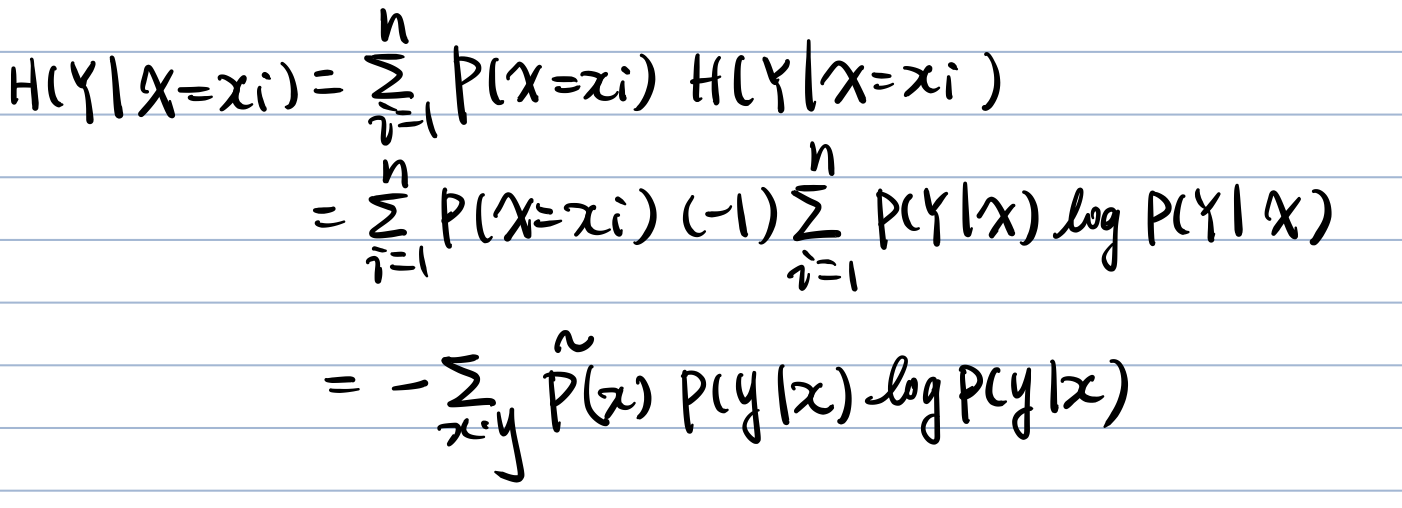 H(Y|X=xi) = \sum_{i=1}^{n} P(X=xi) H(Y|X=xi)
= \sum_{i=1}^{n} P(X=xi) (-1) \sum_{i=1}^{n} P(Y|X) log P(Y|X)
= -\sum_{x.y} \tilde{P}(x) P(y|x) log P(y|x)